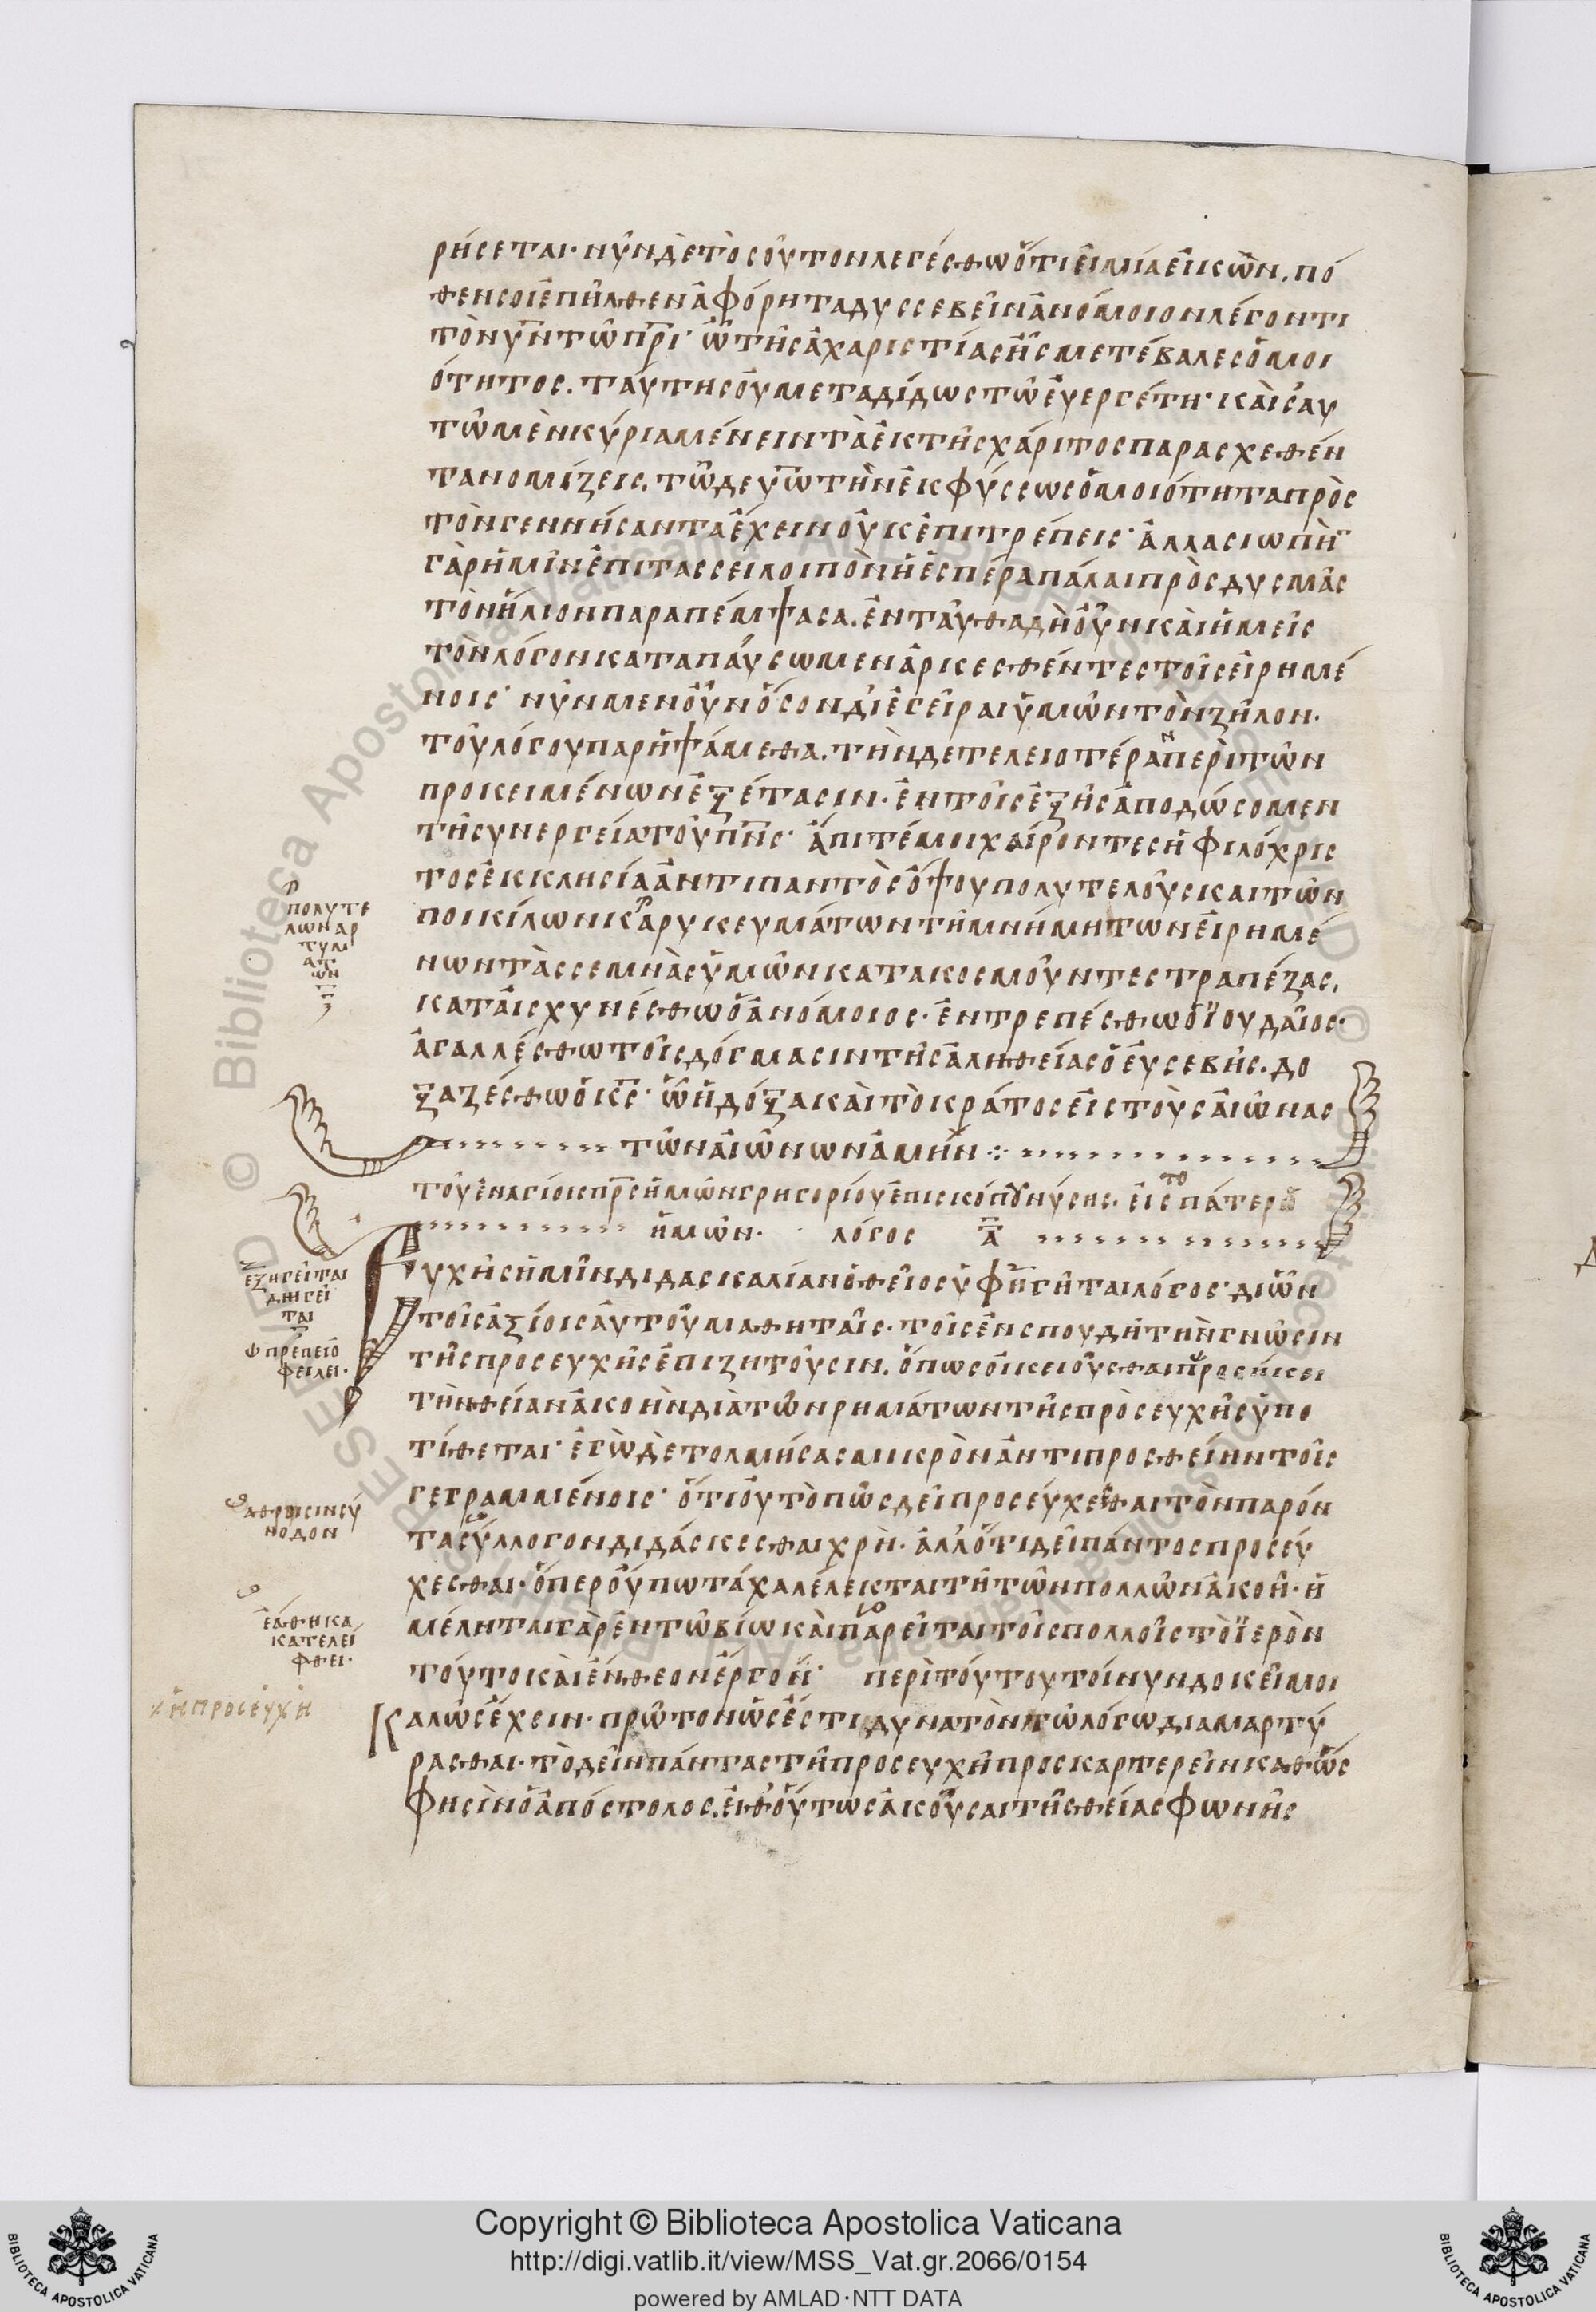 ρήσεται· νῦν δὲ τοσοῦτον λεγέσθω ὅτι εἰ μία εἰκὼν. πό
θεν σοι ἐπῆλθεν ἀφόρητα δυσσεβεῖν ἀνόμοιον λέγοντι
τὸν υ̅ν̅ τῶ π̅ρ̅ι̅· ὢ τῆς ἀχαριστίας ἧς μετέβαλες ὁμοι
ότητος. ταύτης οὐ μεταδίδως τῶ ἐυεργέτη· καὶ σαυ
τῶ μὲν κύρια μένειν τὰ ἐκ τῆς χάριτος παρασχεθέν
τα νομίζεις. τῶ δε υ̅ω̅ τὴν ἐκ φύσεως ὁμοιότητα πρὸς
τὸν γεννήσαντα ἔχειν οὐκ ἐπιτρέπεις· ἀλλα σιωπὴν
γὰρ ἡμῖν ἐπιτασσει λοιπὸν ἡ ἑσπέρα πάλαι πρὸς δυσμὰς
τὸν ἥλιον παραπέμψασα. ἐνταῦθα δὴ οὖν καὶ ἡμεῖς
τὸν λόγον καταπαύσωμεν ἀρκεσθέντες τοῖς εἰρημέ
νοις· νῦν μεν οὖν ὅσον διεγεῖραι ὑμῶν τὸν ζῆλον.
τοῦ λόγου παρηψάμεθα. τὴν δε τελειοτέραν περὶ τῶν
προκειμένων ἐξέτασιν. ἐν τοῖς ἑξῆς ἀποδώσομεν
τῆ συνεργεία τοῦ π̅ν̅ς̅· ἄπιτέ μοι χαίροντες ἡ φιλόχρισ
τος ἐκκλησία ἀντι παντὸς ὄψου πολυτελοῦς και τῶν
ποικίλων κ͵ ἀρυκευμάτων τῆ μνήμη των εἰρημέ
νων τὰς σεμνὰς ὑμῶν κατακοσμοῦντες τραπέζας.
καταισχυνέσθω ὁ ἀνόμοιος. ἐντρεπέσθω ὁ ἰουδαῖος.
ἀγαλλέσθω τοῖς δόγμασιν τῆς ἀληθείας ὁ ἐυσεβής. δο
ξαζέσθω ὁ κ̅ς̅· ὧ ἡ δόξα καὶ τὸ κράτος εἰς τοὺς ἀιῶνας
τῶν ἀιώνων ἀμήν :
του ἐν αγίοις π̅ρ̅ς̅ ἡμῶν γρηγορίου ἐπισκόπου νύσης. εἰς το πάτερ
ἡμῶν. λόγος α̅
πολυτε
λων αρ
τυμ
ατ
ων
Προσευχῆς ἡμῖν διδασκαλίαν ὁ θεῖος ὑφηγῆται λόγος· δι ὧν
ἐξηγεῖται
διηγεῖ
ται
τοῖς ἀξίοις ἀυτοῦ μαθηταῖς. τοῖς ἐν σπουδῆ τὴν γνῶσιν
πρέπει ὀ
φείλει.
τῆς προσευχῆς ἐπιζητοῦσιν. ὅπως οἰκειοῦσθαι προσήκει
τὴν θείαν ἀκοὴν διὰ τῶν ρημάτων τῆς προσευχῆς ὑπο
τίθεται· ἐγὼ δὲ τολμήσας μικρὸν ἀντιπροσθείην τοῖς
γεγραμμένοις· ὅτι ου τὸ πῶς δεῖ προσεύχεσθαι τὸν παρόν
ἀθροισιν σύ
νοδον
τα σύλλογον διδάσκεσθαι χρή. ἀλλ ὅτι δεῖ πάντος προσεύ
χεσθαι. ὅπερ οὔπω τάχα λέλεκται τῆ τῶν πολλῶν ἀκοῆ. ἠ
ἐάθη κα
κατελεί
φθει.
μέληται γὰρ ἐν τῶ βίω καὶ παρεῖται τοῖς πολλοῖς τὸ ἱερὸν
τούτο καὶ ἔνθεον ἔργον· περὶ τούτου τοίνυν δοκεῖ μοι
ἡ προσευχὴ
Καλῶς ἔχειν. πρῶτον ὡς ἔστι δυνατὸν τῶ λόγω διαμαρτύ
ρασθαι. τὸ δεῖν πάντας τῆ προσευχῆ προσκαρτερεῖν καθὼς
φησὶν ὁ ἀπόστολος. εἶθ οὕτως ἀκοῦσαι τῆς θείας φωνῆς
Copyright © Biblioteca Apostolica Vaticana
http://digi.vatlib.it/view/MSS_Vat.gr.2066/0154
powered by AMLAD·NTT DATA
BIBLIOTECA APOSTOLICA VATICANA
BIBLIOTECA APOSTOLICA VATICANA